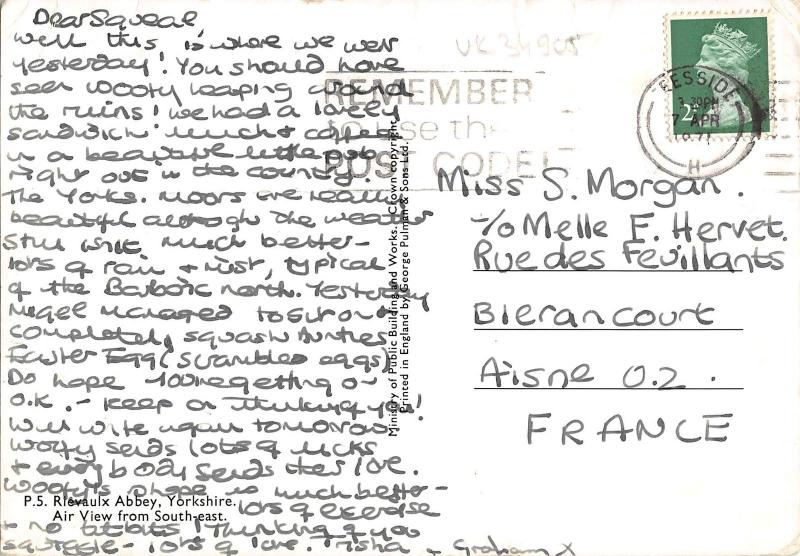 Dear Squeal
Well this is where we went
yesterday! You should have
seen Wooty leaping around
the ruins! we had a lovely
sandwich lunch & coffee
in a beautiful little pub
right out in the country.
The Yorks. moors are really
beautiful although the weather
still isn't much better -
lots of rain + mist, typical
of the Barbaric north. Yesterday
Nigel managed to sit on +
completely squash Aunties
Easter Egg (scrambled eggs)
Do hope you're getting on
O.K. - keep on thinking of you!
Will write again tomorrow
Wooty sends lots of licks
+ everybody sends their love.
Wooty's shape is much better -
lots of exercise
+ no titbits! Thinking of you
squiggle - lots of love. Trisha + Graham X
P.5. Rievaulx Abbey, Yorkshire.
Air View from South-east.
Ministry of Public Building and Works. Crown copyright
Printed in England by George Pulman & Sons Ltd.
UK 34905
REMEMBER
to use the
POST CODE!
EESSIDE
3.30PM
7 APR
1971
H
2½P
Miss S. Morgan.
c/o Melle F. Hervet.
Rue des Feuillants
Blerancourt
Aisne 02.
FRANCE